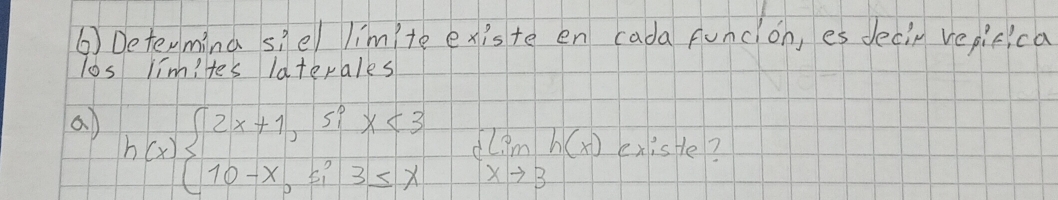 6) Determina si el límite existe en cada función, es decir verifica
los límites laterales
a) h(x) { 2x+1, si x < 3
10-x, si 3 ≤ x
¿Lím h(x) existe?
x→3